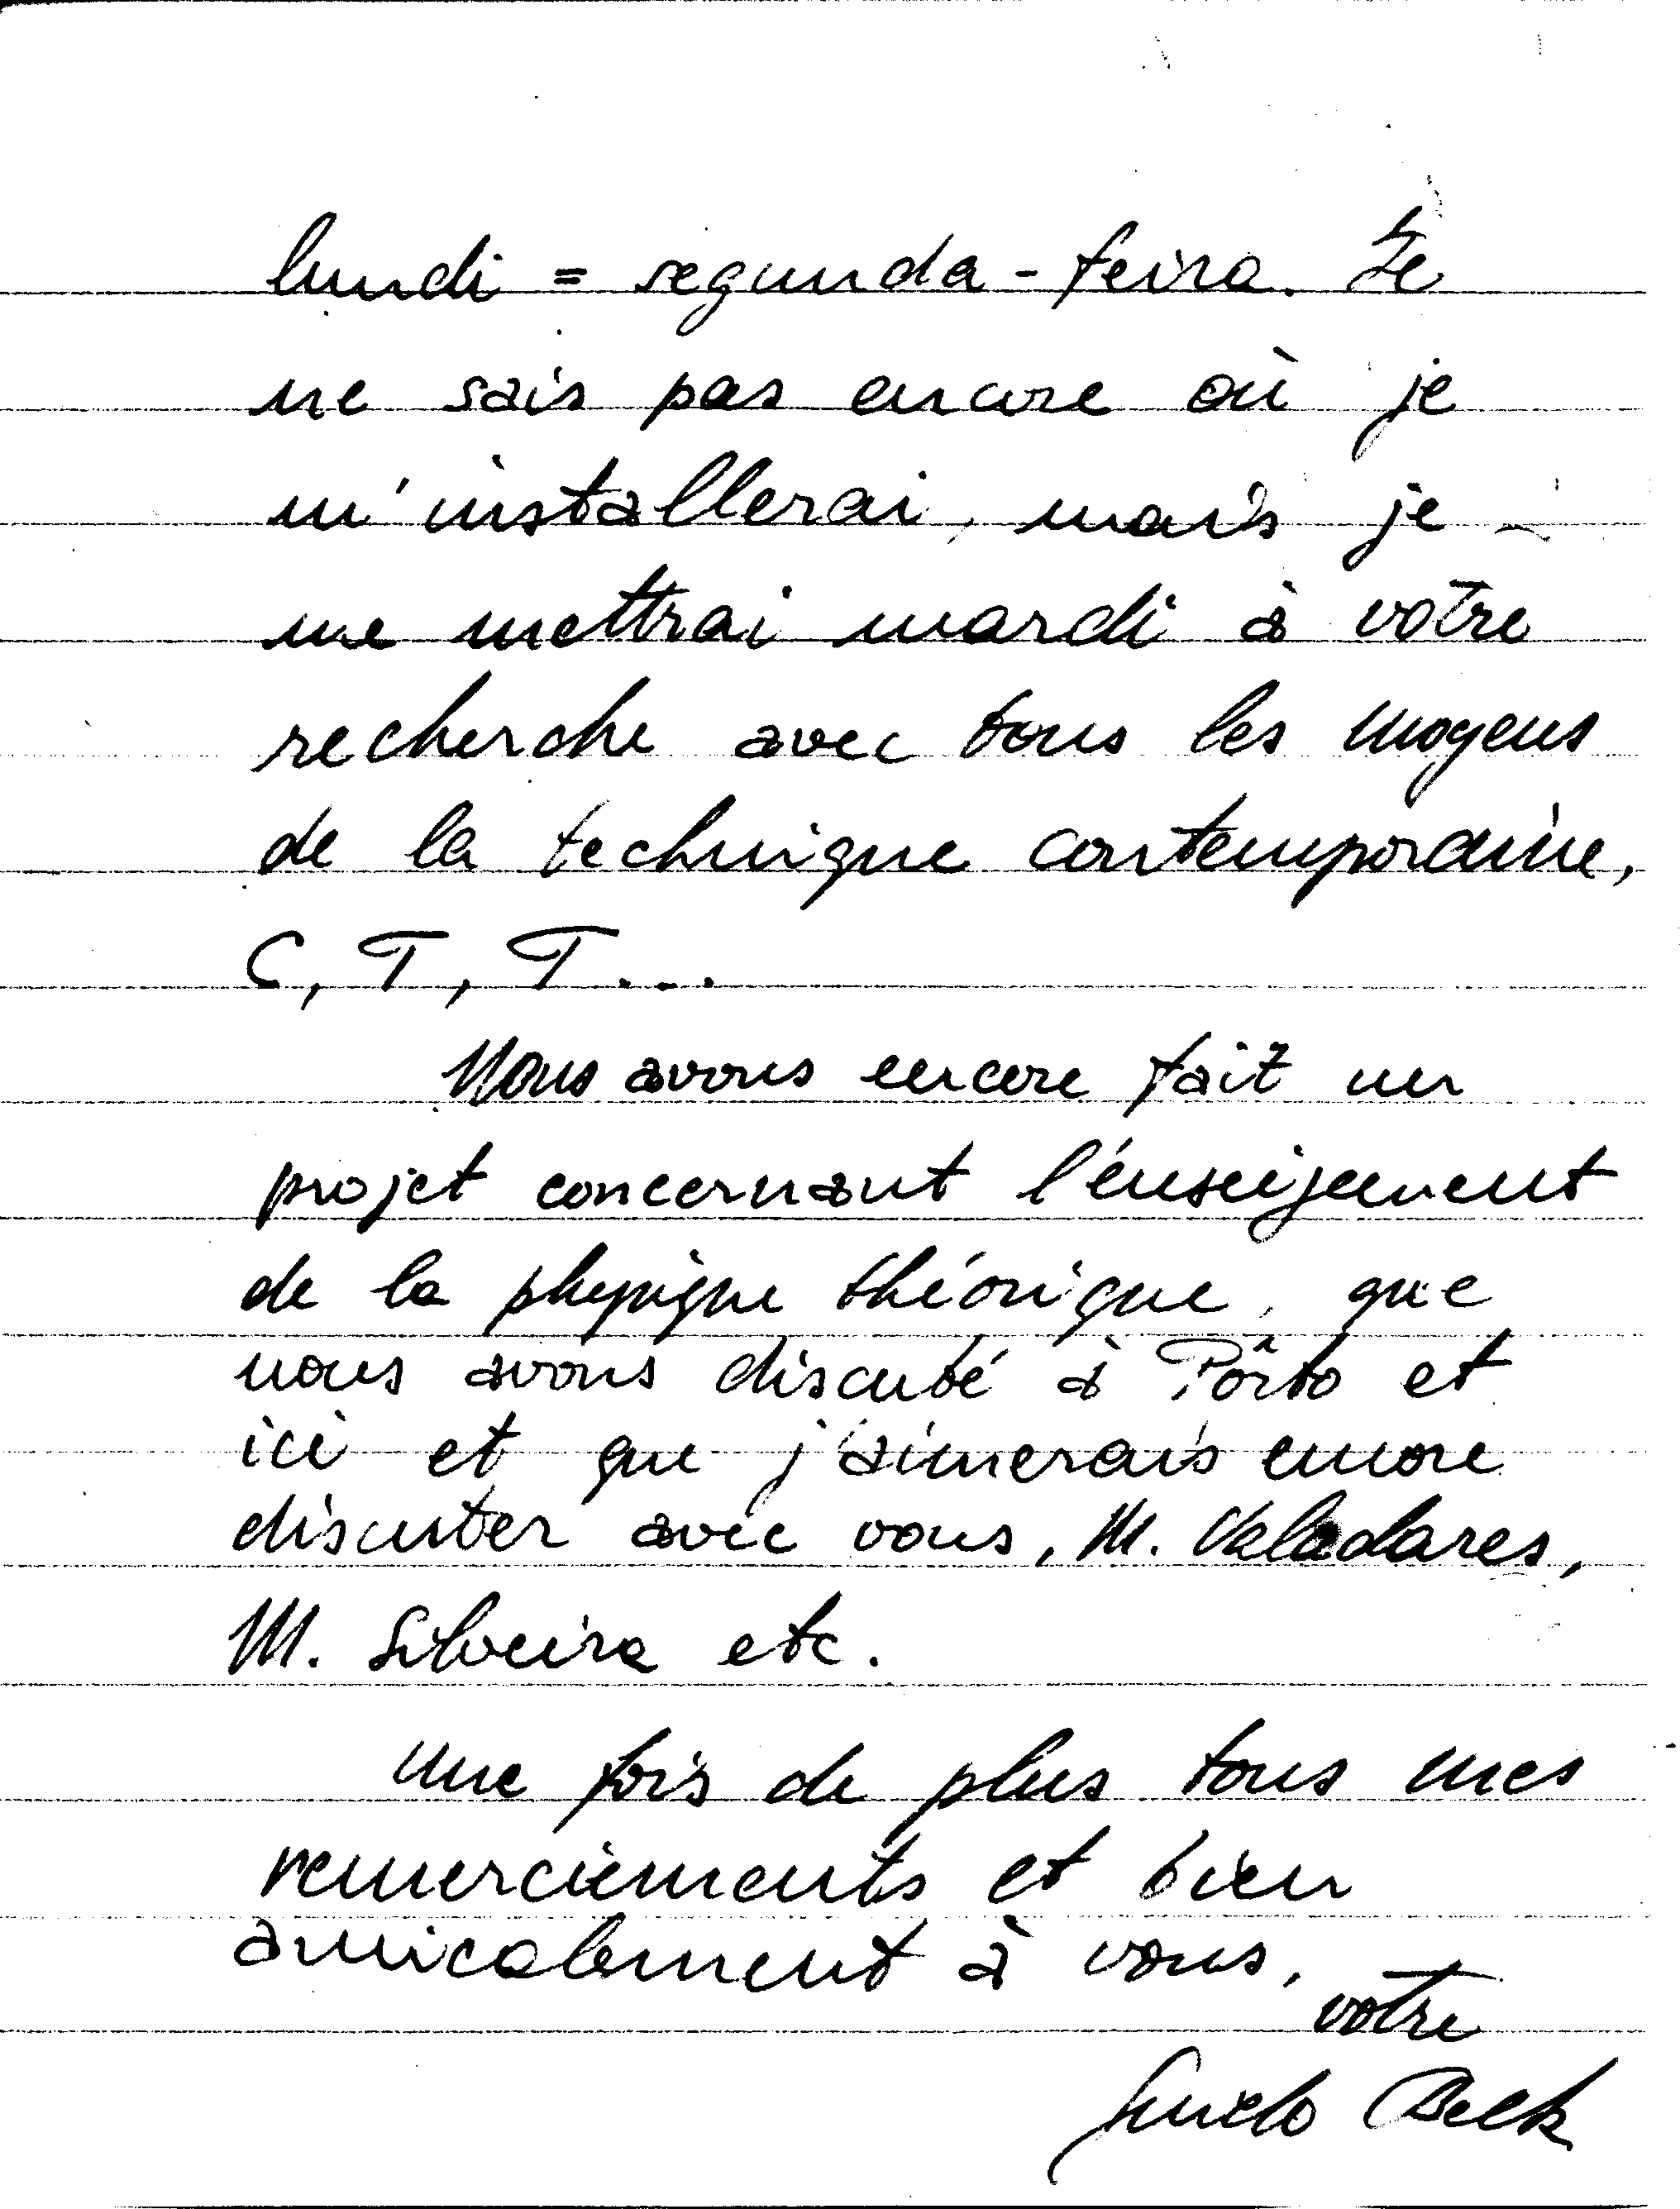 lundi = segunda-feira. Je
ne sais pas encore où je
m'installerai, mais je
me mettrai mardi à votre
recherche avec tous les moyens
de la technique contemporaine,
C, T, T...
Nous avons encore fait un
projet concernant l'énseijement
de la physique théorique, que
nous avons discuté à Pôrto et
ici et que j'aimerais encore
discuter avec vous, M. Valadares,
M. Silveira etc.
Une fois de plus tous mes
remerciements et bien
amicalement à vous,
votre
Guido Beck